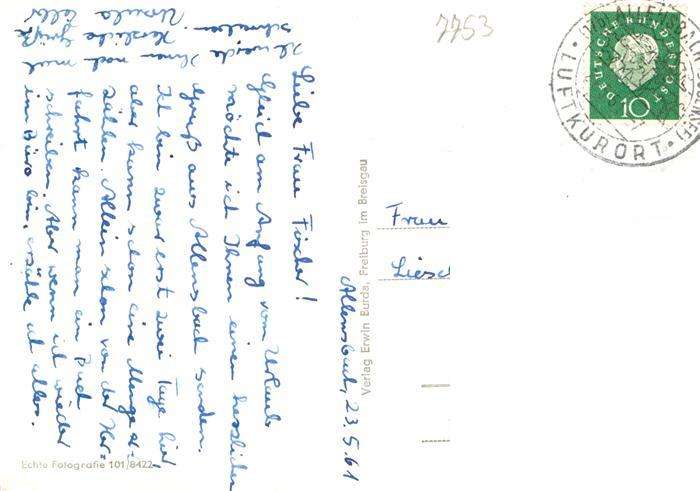 Allensbach, 23.5.61
Liebe Frau Fixler!
Gleich am Anfang vom Urlaub
möchte ich Ihnen einen herzlichen
Gruß aus Allensbach senden.
Ich bin zwar erst zwei Tage hier,
aber kann schon eine Menge er-
zählen. Allein schon von der Her-
fahrt kann man ein Buch
schreiben. Aber wenn ich wieder
im Büro bin, erzähle ich alles.
Ich werde Ihnen noch mal
schreiben. Herzliche Grüße
Ursula
7753
DEUTSCHE BUNDESPOST
10
ALLENSBACH
LUFTKURORT
Frau
Liesel
Verlag Erwin Burda, Freiburg im Breisgau
Echte Fotografie 101/8422